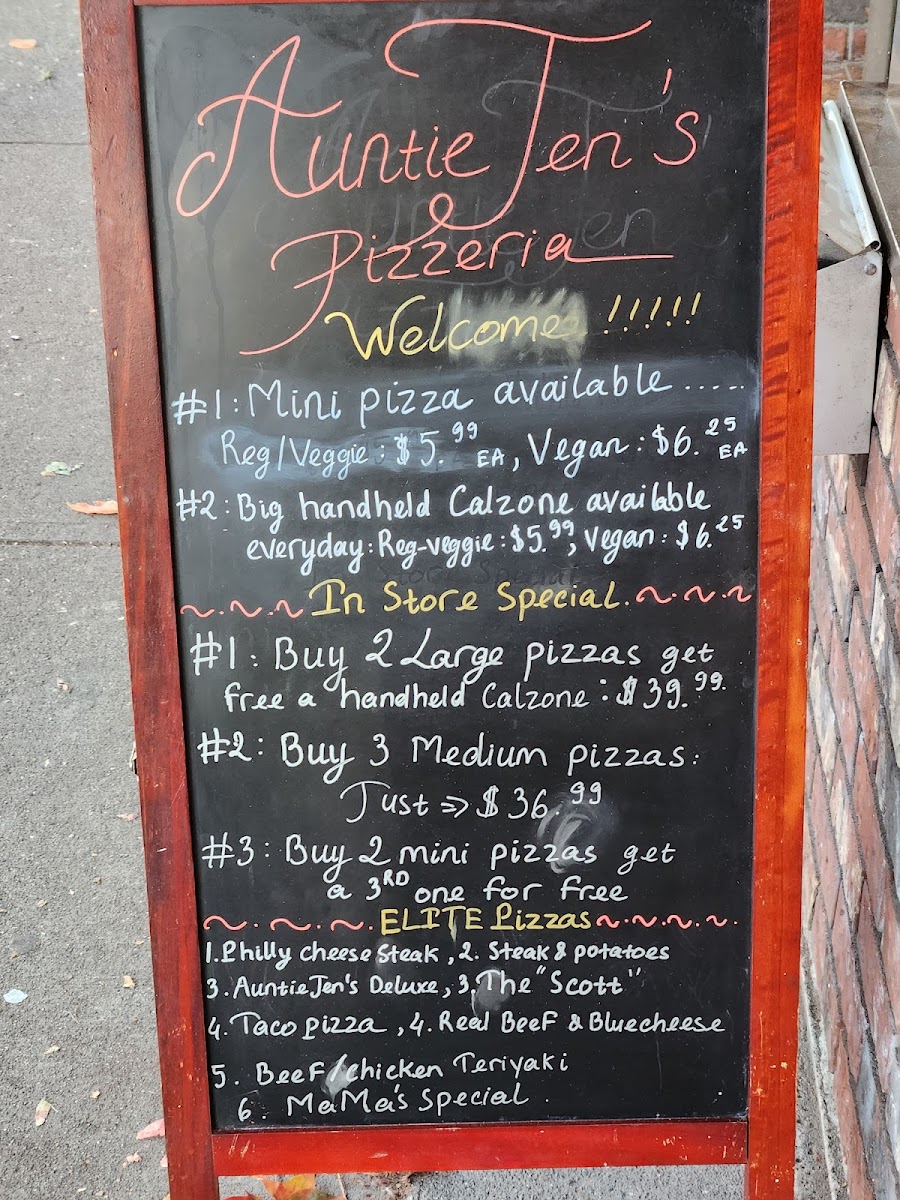 Auntie Jen's
Pizzeria
Welcome !!!!!
#1: Mini pizza available .....
Reg/Veggie: $5.99 EA, Vegan: $6.25 EA
#2: Big handheld Calzone available
everyday: Reg-veggie: $5.99, Vegan: $6.25
~.~.~ In Store Special. ~.~.~
#1: Buy 2 Large pizzas get
free a handheld Calzone: $39.99.
#2: Buy 3 Medium pizzas:
Just => $36.99
#3: Buy 2 mini pizzas get
a 3RD one for free
~.~.~.~. ELITE Pizzas ~.~.~.~.
1. Philly cheese steak, 2. Steak & potatoes
3. Auntie Jen's Deluxe, 3. The "Scott"
4. Taco pizza, 4. Real Beef & Bluecheese
5. Beef/chicken Teriyaki
6. MaMa's Special.